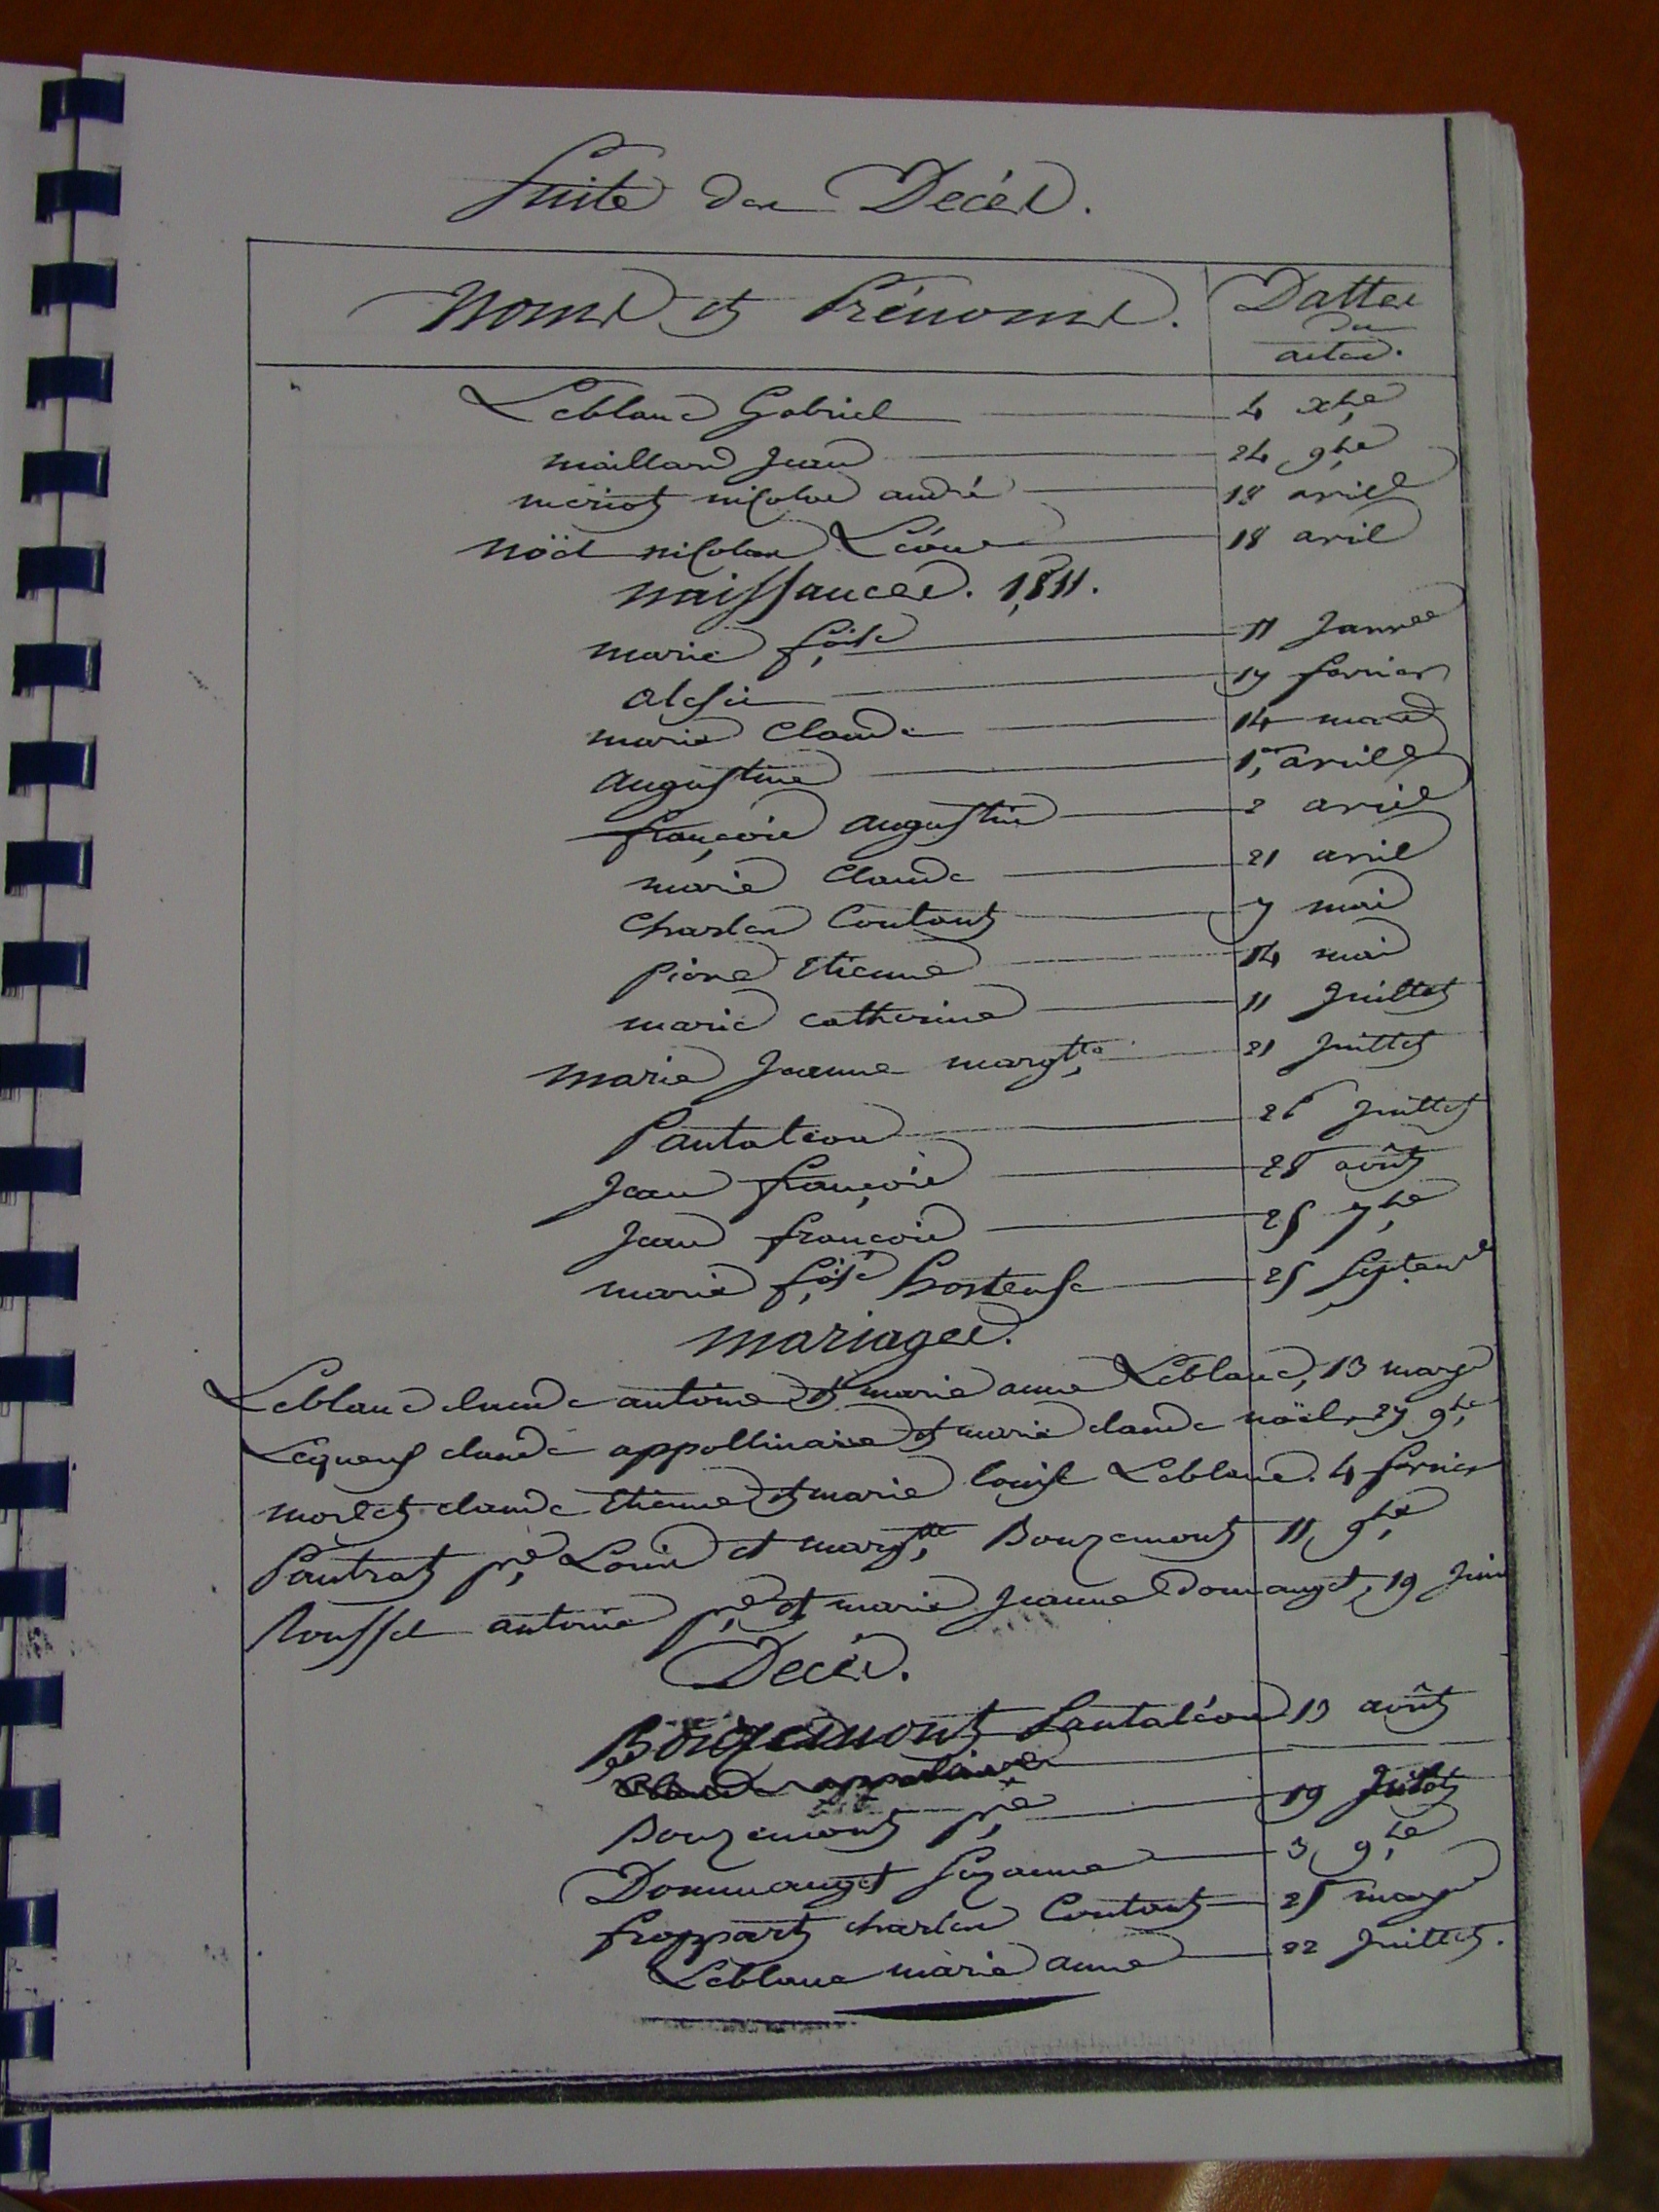 Suite des Decés.
Noms et Prénoms. Dattes
des
actes.
Leblanc Gabriel 4 xbre
maillard Jean 24 9bre
meriot nicolas andré 18 avril
Nöel nicolas Léon 18 avril
Naissances. 1811.
marie fçoise 11 Janvier
17 fevrier
marie Claude 14 mars
augustine 1er avril
françois augustin 2 avril
marie Claude 21 avril
Charles Coutant 7 mai
pierre Etienne 14 mai
marie catherine 11 Juillet
Marie Jeanne margtte 21 Juillet
Pantaleon 26 Juillet
Jean françois 28 août
Jean françois 25 7bre
marie fçoise hortense 25 Septembre
Mariages.
Leblanc claude antoine et marie anne Leblanc, 13 mars
claude appollinaire et marie claude nöel, 27 9bre
morlet claude Etienne et marie louise Leblanc. 4 fevrier
Pautrat pre Louis et margtte Bouzemont 11 9bre
Roussel antoine pre et marie Jeanne domanget, 19 Juin
Decés.
Bouzemont Pantaléon 13 août
Bouzemont pre 19 Juillet
Dommanget Suzanne 3 9bre
froppart charles Coutant 25 mars
Leblanc marie anne 22 Juillet.